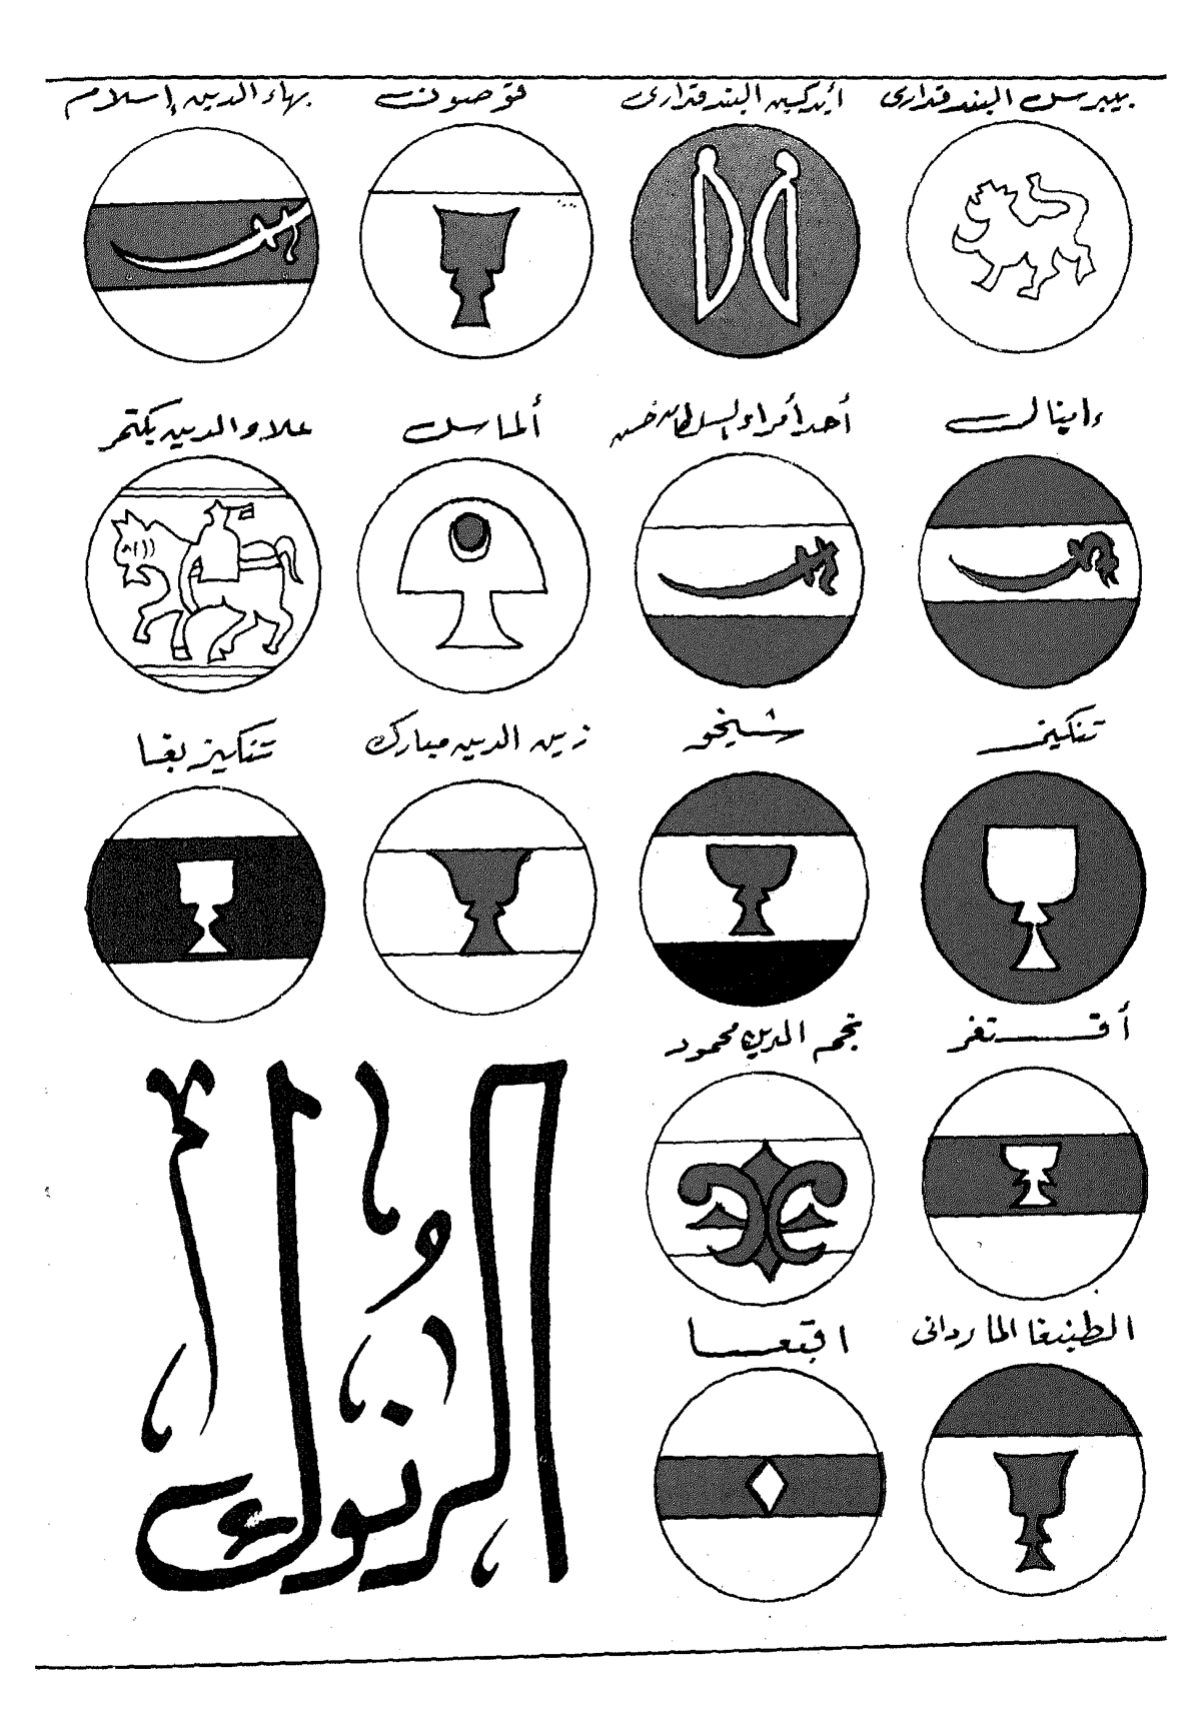 بيبرس البندقدارى
أيدكين البندقدارى
قوصون
بهاء الدين إسلام
إينال
أحد أمراء السلطان حسن
ألماس
علاء الدين بكتمر
تنكيز
شيخو
زين الدين مبارك
تنكيز بغا
أقسنقر
نجم الدين محمود
الطنبغا الماردانى
اقبغا
الرنوك